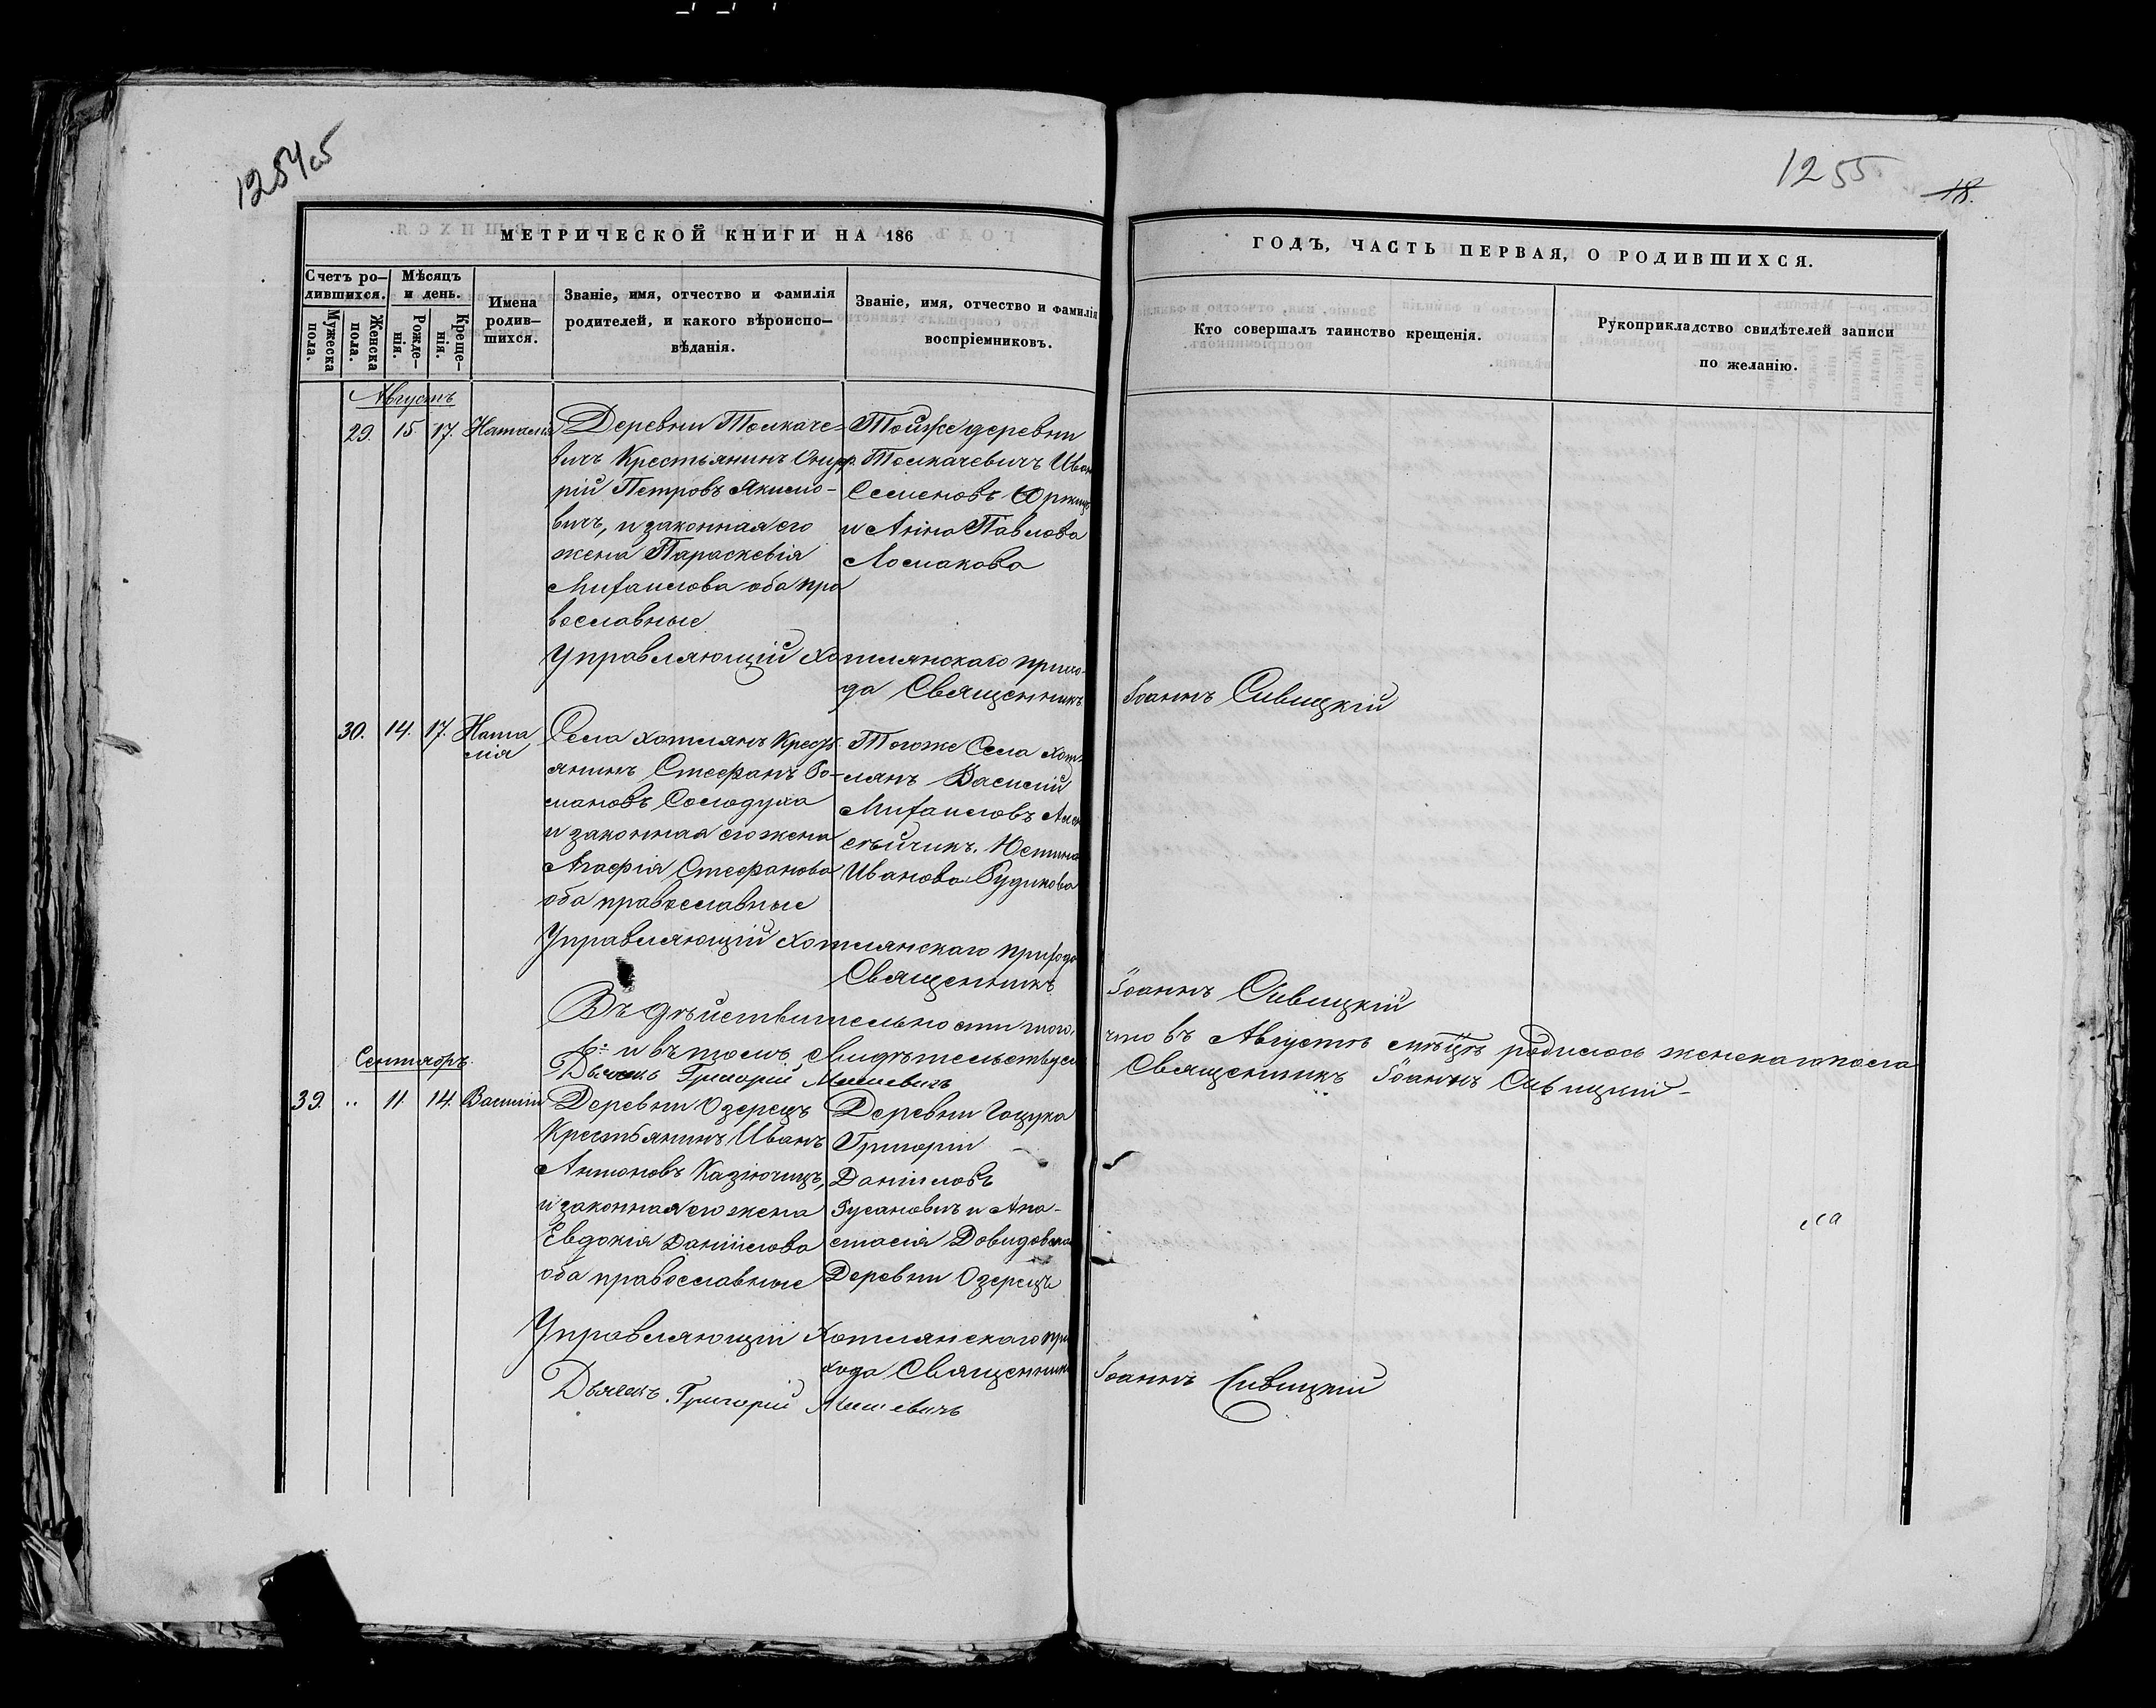 1254об
1255
18.
МЕТРИЧЕСКОЙ КНИГИ НА 186
ГОДЪ, ЧАСТЬ ПЕРВАЯ, О РОДИВШИХСЯ.
Счетъ ро-
дившихся.
Мужеска
пола.
Женска
пола.
Мѣсяцъ
и день.
Рожде-
нія.
Креще-
нія.
Имена
родив-
шихся.
Званіе, имя, отчество и фамилія
родителей, и какого вѣроиспо-
вѣданія.
Званіе, имя, отчество и фамилія
воспріемниковъ.
Кто совершалъ таинство крещенія.
Рукоприкладство свидѣтелей записи
по желанію.
Августъ
29. 15. 17. Наталія
Деревни Толкаче-
вичъ Крестьянинъ Онуф-
рій Петровъ Якимо-
вичъ, и законная его
жена Параскевія
Михаилова оба пра
вославные
Тойже деревни
Толкачевичъ Иван
Семеновъ
и Анна Павлова
Лосакова
Управляющій Хотлянскаго прихо-
да Священникъ Іоаннъ Сивицкій
30. 14. 17. Ната
лія
Села Хотлянъ Кресть-
янинъ Стефанъ Ро-
мановъ Солодуха
и законная его жена
Агафія Стефанова
оба православные
Тогоже Села Хот-
лянъ Василій
Михаиловъ Але
ксѣйчикъ. Юстина
Иванова Рудикова
Управляющій Хотлянскаго прихода
Священникъ Іоаннъ Сивицкій
Въ дѣйствительности того, что въ Августѣ мѣсцѣ родилось женскаго пола
6: и въ томъ свидѣтельствуемъ Священникъ Іоаннъ Сивицкій -
Дьячекъ Григорій
Сентябрь.
39. .. 11. 14. Василій
Деревни Озерецъ
Крестьянинъ Иванъ
Антоновъ Казючицъ,
и законная его жена
Евдокія Даніилова
оба православные
Деревни Гощука
Григорій
Даніиловъ
Русановичъ и Ана-
стасія Довидовска
Деревни Озерецъ
Управляющій Хотлянскаго при
хода Священникъ Іоаннъ Сивицкій
Дьячекъ. Григорій